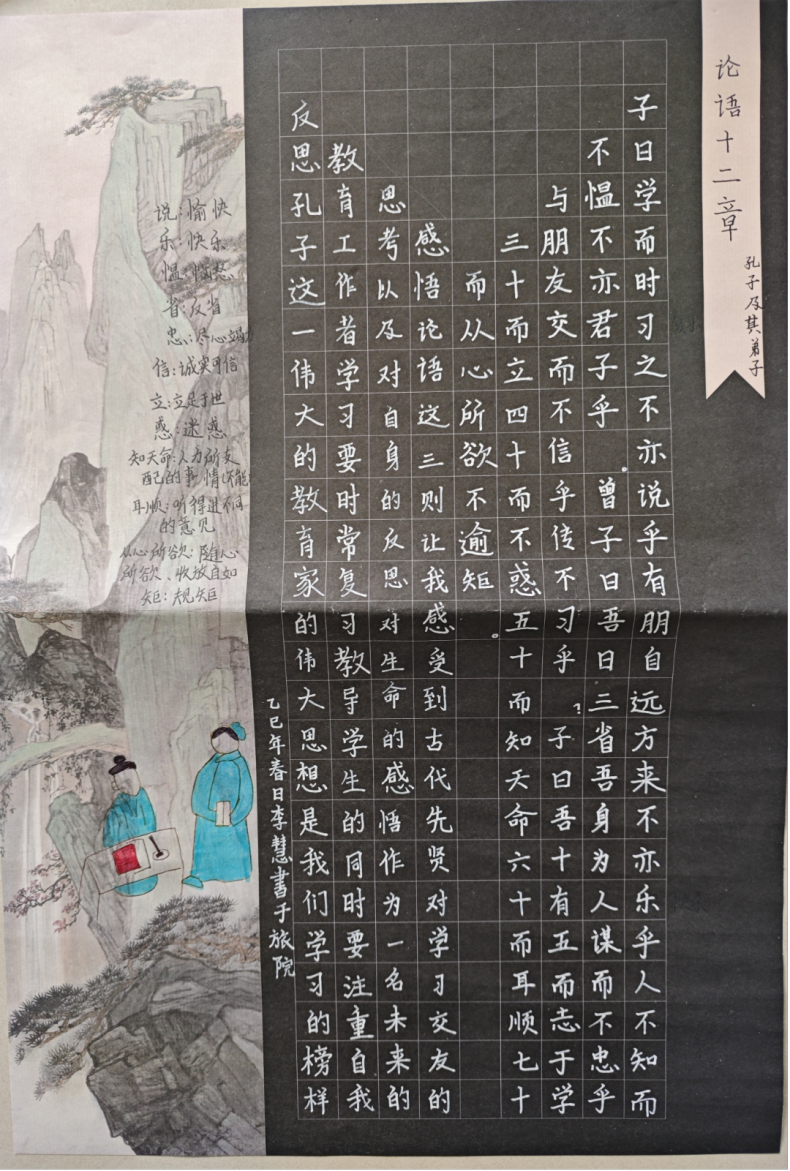 论语十二章
孔子及其弟子
子曰学而时习之不亦说乎有朋自远方来不亦乐乎人不知而
不愠不亦君子乎。曾子曰吾日三省吾身为人谋而不忠乎
与朋友交而不信乎传不习乎?子曰吾十有五而志于学
三十而立四十而不惑五十而知天命六十而耳顺七十
而从心所欲不逾矩。
感悟论语这三则让我感受到古代先贤对学习交友的
思考以及对自身的反思对生命的感悟作为一名未来的
教育工作者学习要时常复习教导学生的同时要注重自我
反思孔子这一伟大的教育家的伟大思想是我们学习的榜样
乙巳年春日李慧書于旅院
说:愉快
乐:快乐
愠:
省:反省
忠:尽心竭力
信:诚实可信
立:立足于世
惑:迷惑
知天命:人力所支
配的事情
耳顺:听得进不同
的意见
从心所欲:随心
所欲、收放自如
矩:规矩